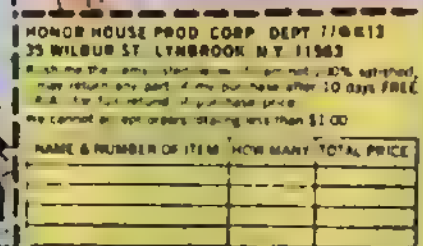 HONOR HOUSE PROD CORP DEPT 7
35 WILBUR ST LYNBROOK N.Y. 11563
Rush me the items I am not 100% satisfied,
may return any part of my purchase after 10 days FREE
for full refund of purchase price
We cannot accept orders totaling less than $1.00
NAME & NUMBER OF ITEM HOW MANY TOTAL PRICE